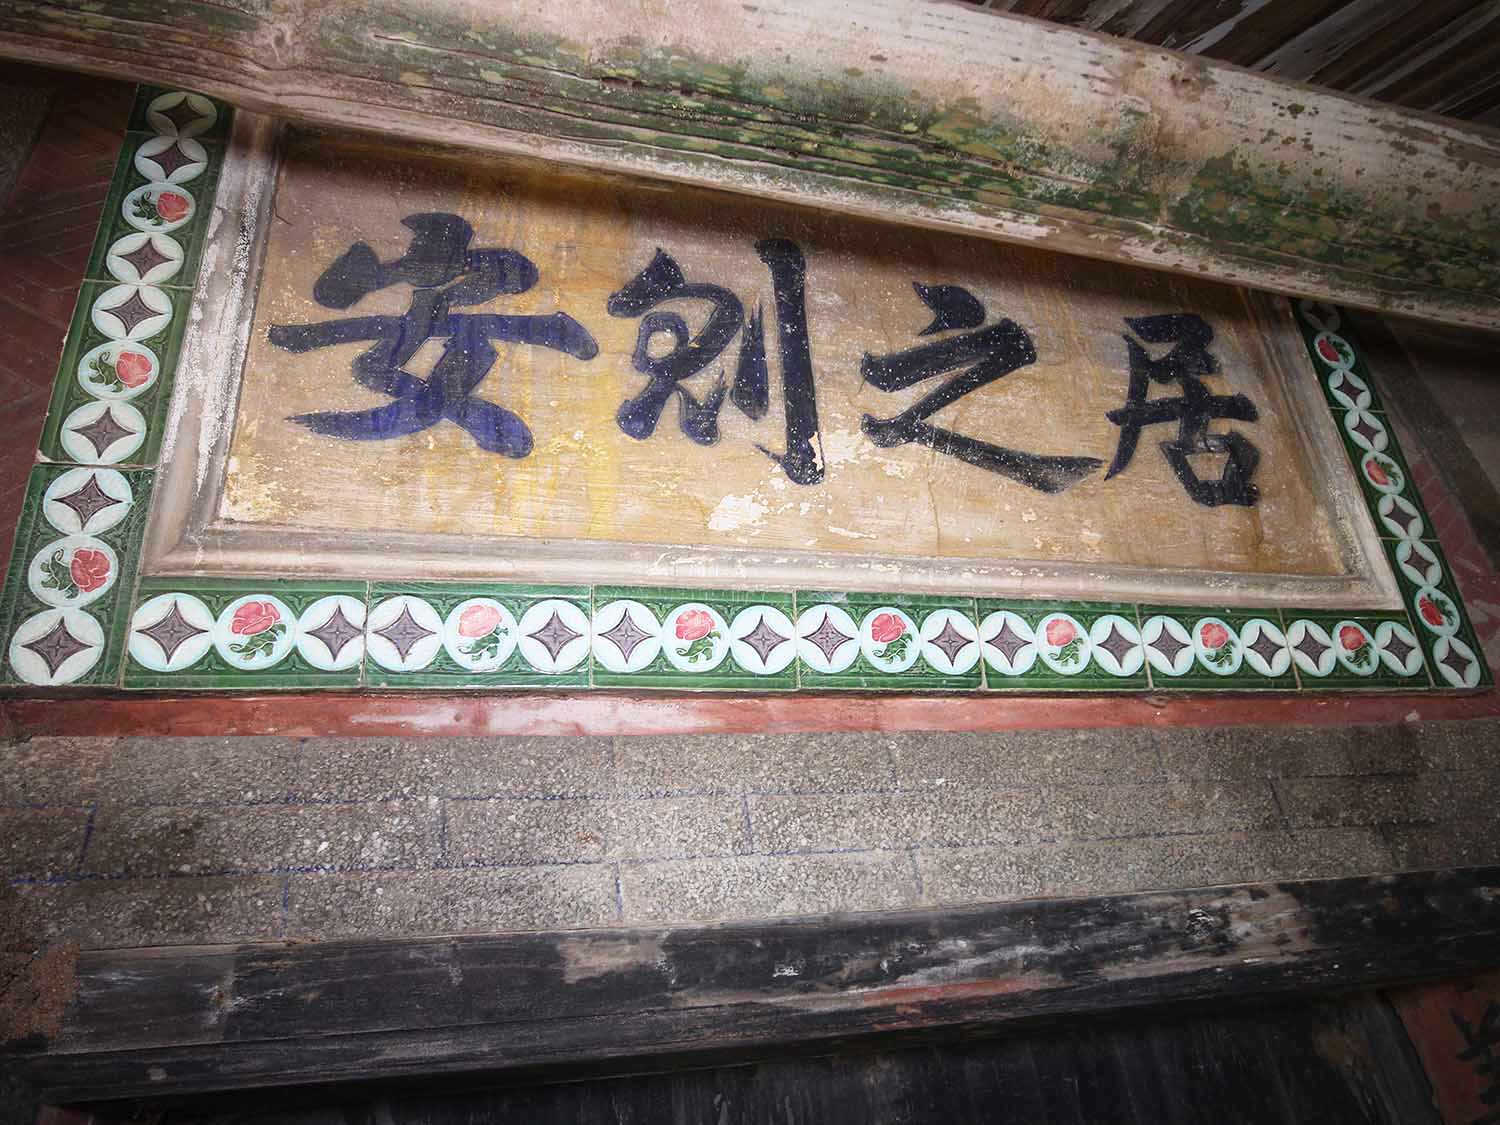 居之則安